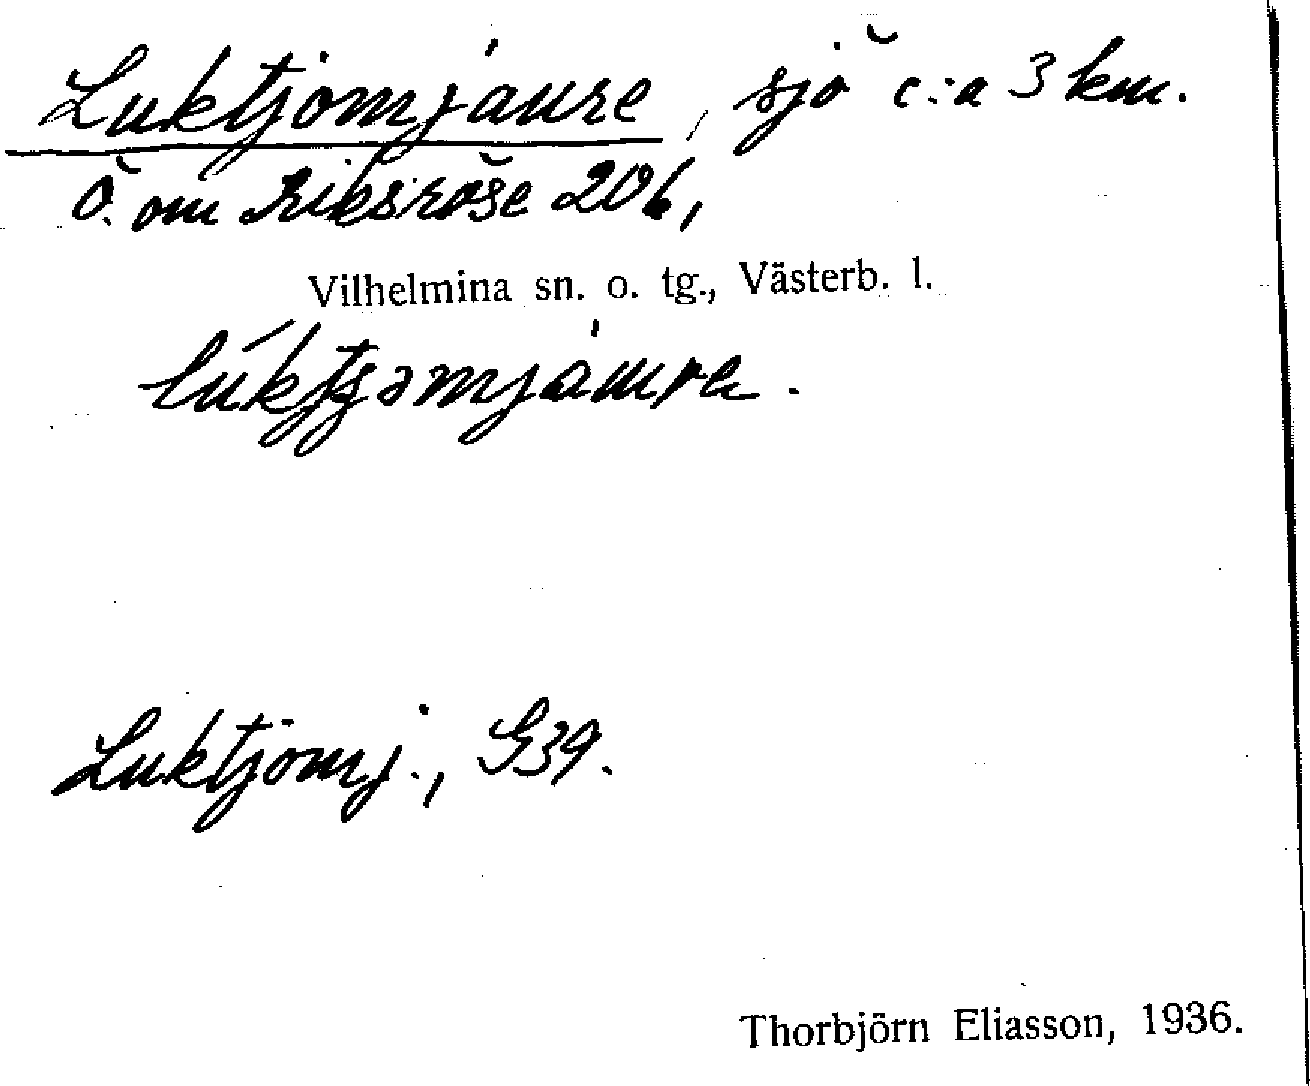 Luktjomjaure, sjö c:a 3 km.
Ö. om Riksröse 206,
Vilhelmina sn. o. tg., Västerb. l.
Luktjömj., G39.
Thorbjörn Eliasson, 1936.